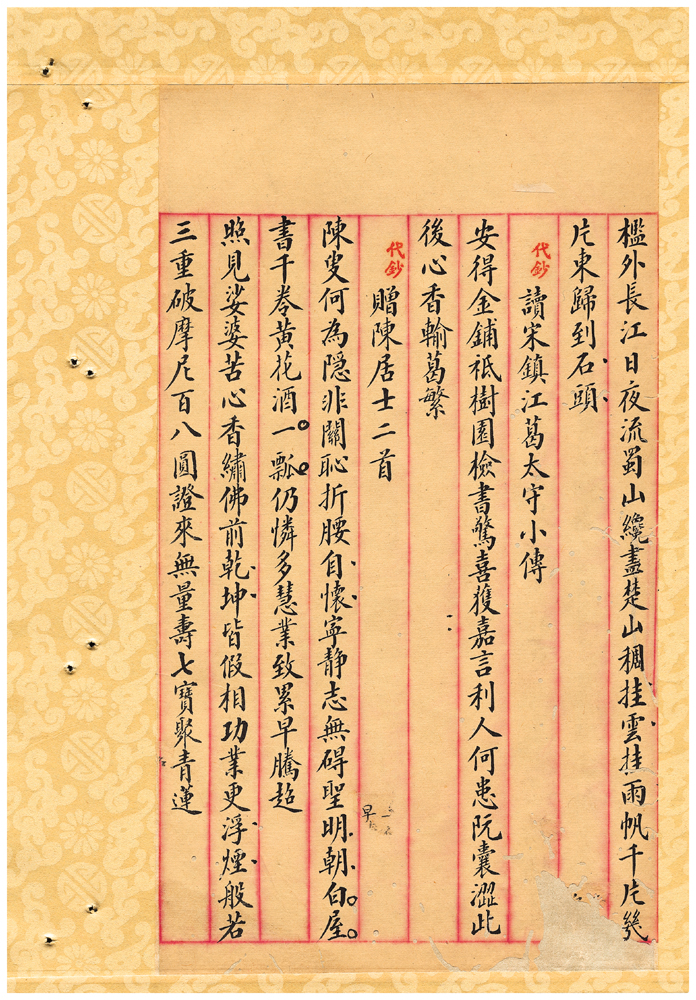 檻外長江日夜流蜀山纔盡楚山稠挂雲挂雨帆千片幾
片東歸到石頭
代鈔
讀宋鎮江葛太守小傳
安得金鋪祗樹園檢書驚喜獲嘉言利人何患阮囊澀此
後心香輸葛繁
代鈔
贈陳居士二首
陳叟何為隱非關恥折腰自懷寧靜志無碍聖明朝白屋
書千卷黃花酒一瓢仍憐多慧業致累早騰超
早
照見娑婆苦心香繡佛前乾坤皆假相功業更浮煙般若
三重破摩尼百八圓證來無量壽七寶聚青蓮